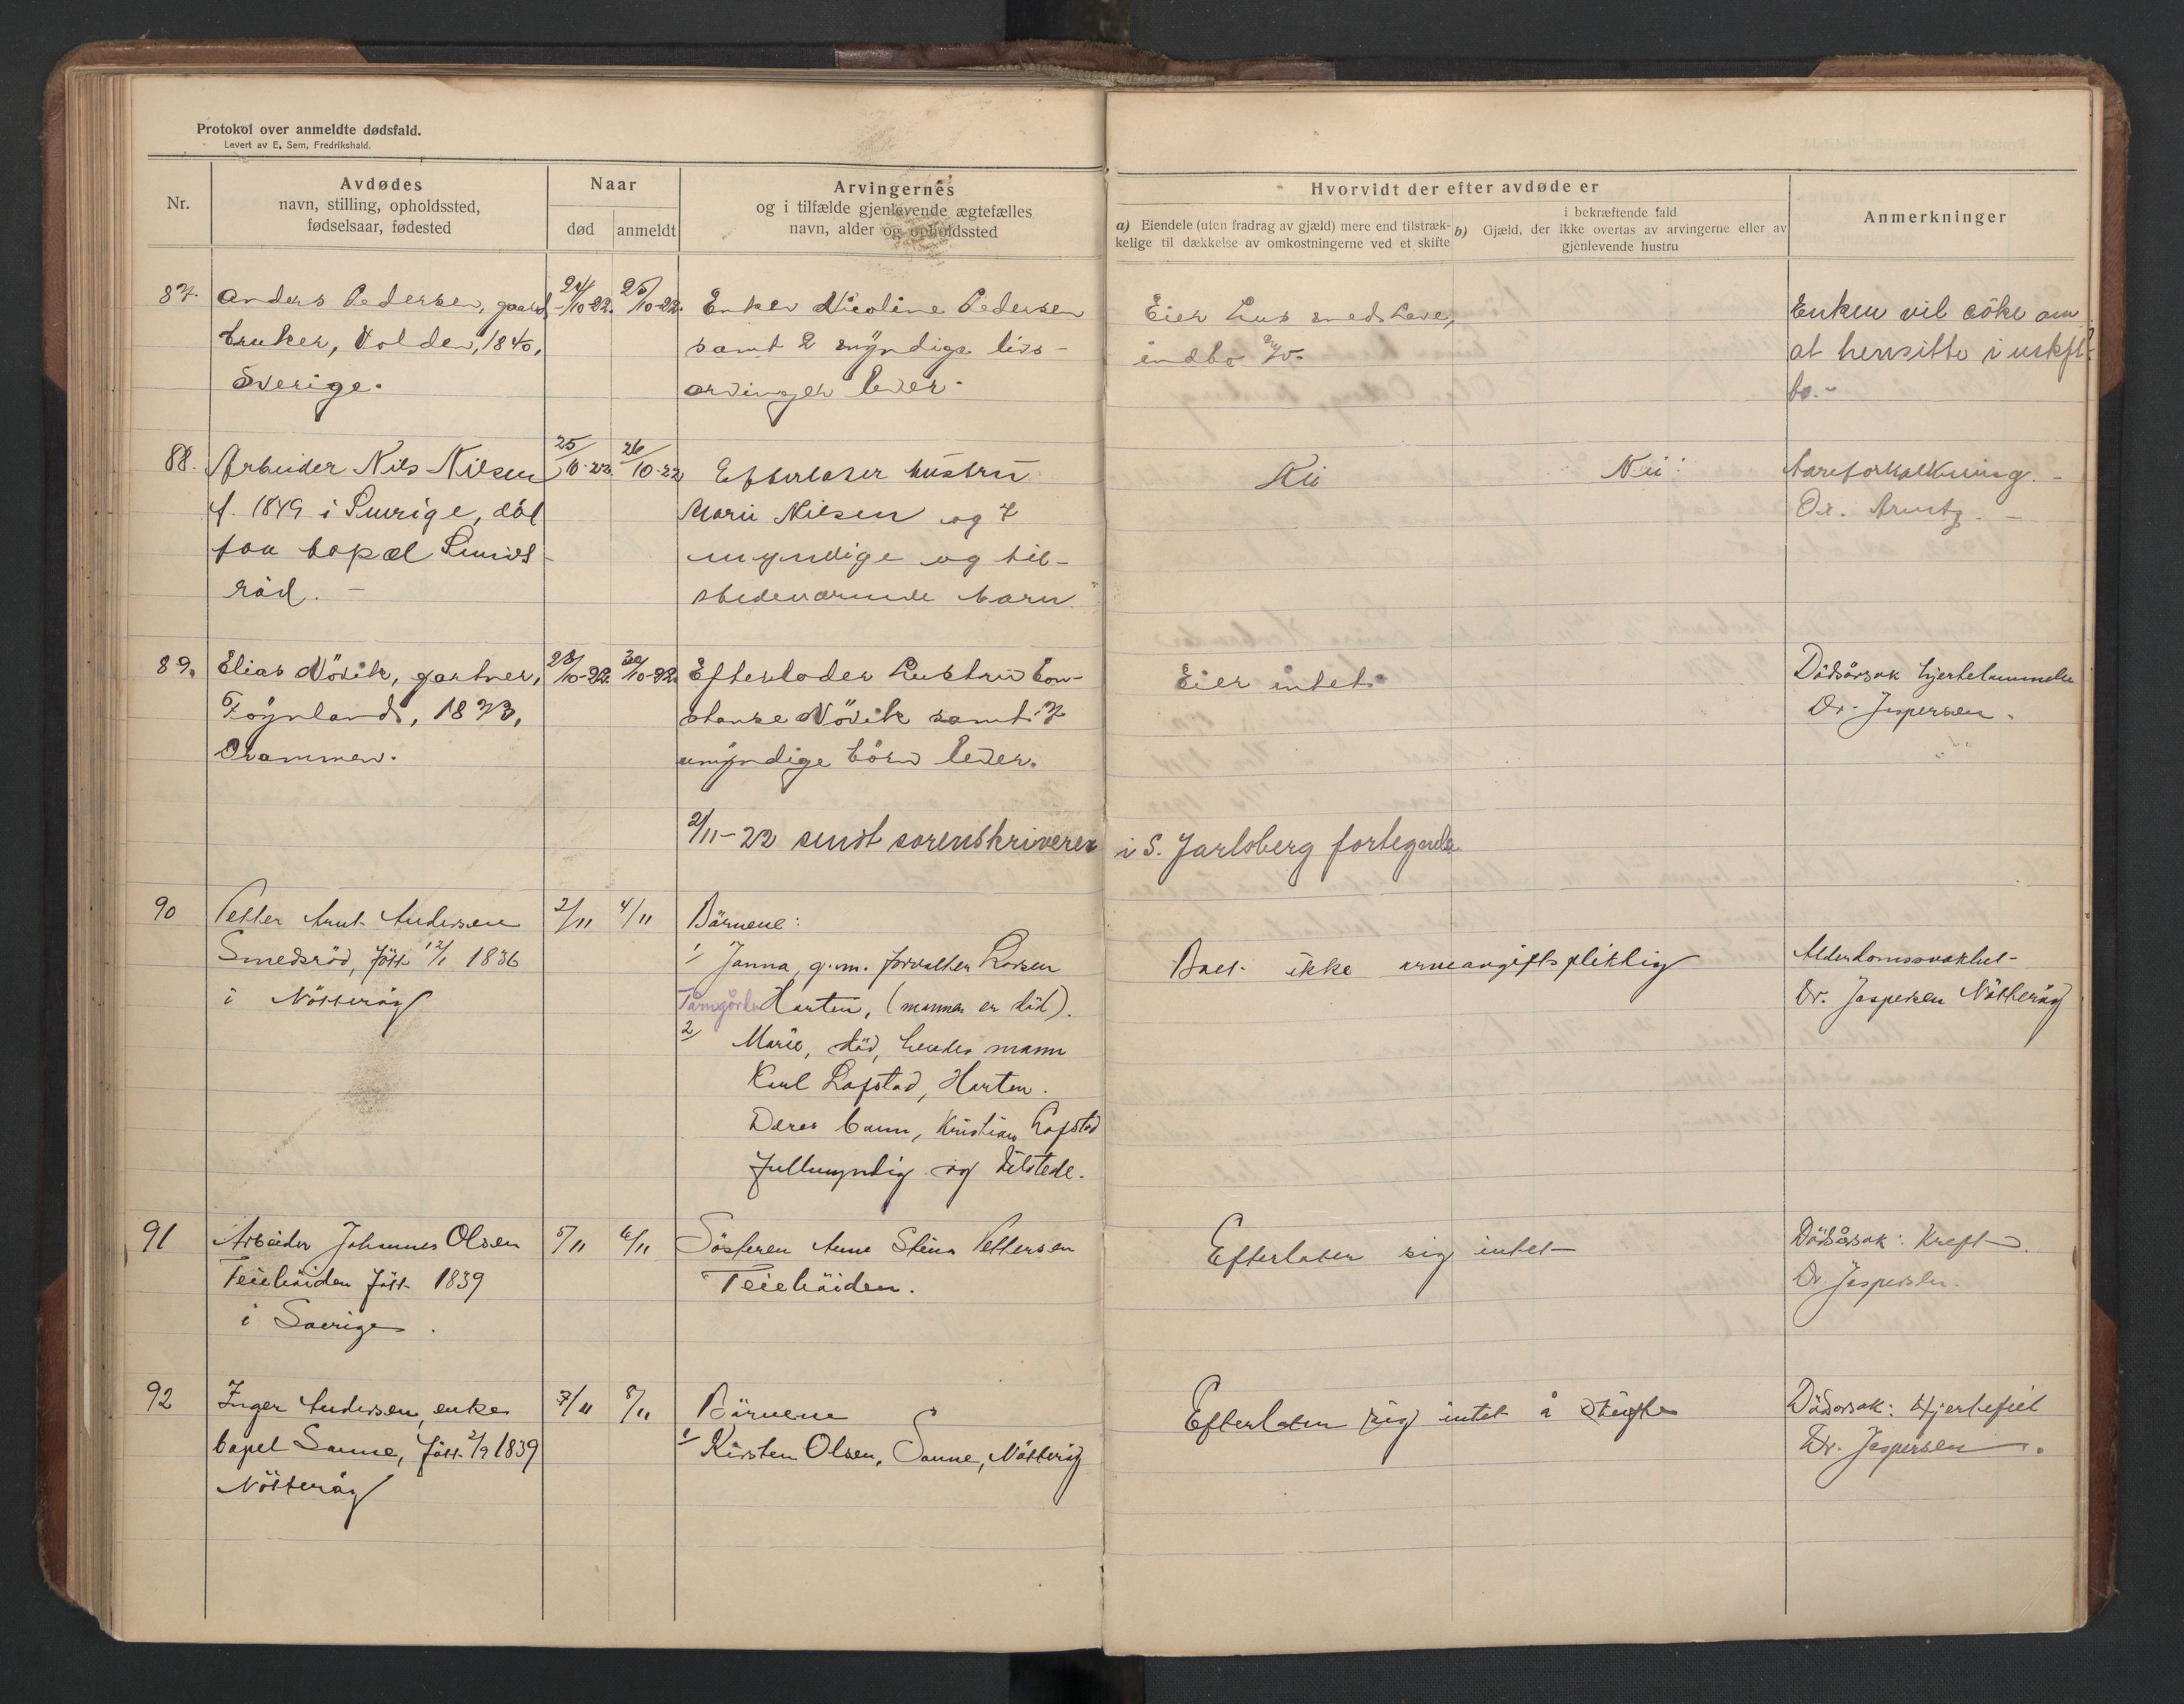 Protokol over anmeldte dødsfald.
Levert av E. Sem, Fredrikshald.
Nr.
Avdødes
navn, stilling, opholdssted,
fødselsaar, fødested
Naar
død
anmeldt
Arvingernes
og i tilfælde gjenlevende ægtefælles
navn, alder og opholdssted
Hvorvidt der efter avdøde er
a) Eiendele (uten fradrag av gjæld) mere end tilstræk-
kelige til dækkelse av omkostningerne ved et skifte
i bekræftende fald
b) Gjæld, der ikke overtas av arvingerne eller av
gjenlevende hustru
Anmerkninger
87. Anders Pedersen, gaard
bruker, Holden, 1840,
Sverige.
24/10-22. 25/10-22.
Enken Nicoline Pedersen
samt 2 myndige livs-
arvinger lever.
Eier hus med have,
indbo
Enken vil söke om
at hensitte i uskft.
bo.-
88. Arbeider Nils Nilsen
f. 1849 i Sverige, död
paa bopæl Smids-
röd. -
25/10-22. 26/10-22
Efterlater hustru
Marie Nilsen og 7
myndige og til-
stedeværende barn
Nei
Nei
Aareforkalkning. -
Dr. Arntz. -
89. Elias Növik, gartner,
Föynland, 1873,
Drammen.
28/10-22. 30/10-22.
Efterlader hustru Con-
stanse Növik samt 7
umyndige börn lever.
Eier intet.
Dödsårsak hjertelammelse
Dr. Jespersen.
2/11-22 sendt sorenskriveren i S. Jarlsberg fortegnelse
90 Petter Arnt Andersen
Smedsröd, föt 12/1 1836
i Nötteröy
2/11 4/11
Börnene:
1/ Janna, g.m. forvalter Larsen
Horten, (mannen er död).
2/ Marie, död, hendes mann
Karl Lofstad, Horten.
Deres barn, Kristian Lofstad
fullmyndig og tilstede.
Boet ikke arveavgiftspliktig
Alderdomssvakhet
Dr. Jespersen Nötteröy
91 Arbeider Johannes Olsen
Teiehöiden föt 1839
i Sverige.
5/11 6/11
Sösteren Anne Stina Pettersen
Teiehöiden.
Efterlater sig intet
Dödsårsak: Kreft.
Dr. Jespersen.
92 Inger Andersen, enke
bopel Sanne, föt 2/9 1839
Nötteröy
7/11 8/11
Börnene
1/ Kirsten Olsen, Sanne, Nötteröy
Efterlater sig intet å skifte
Dödsorsak: Hjertefeil
Dr. Jespersen.